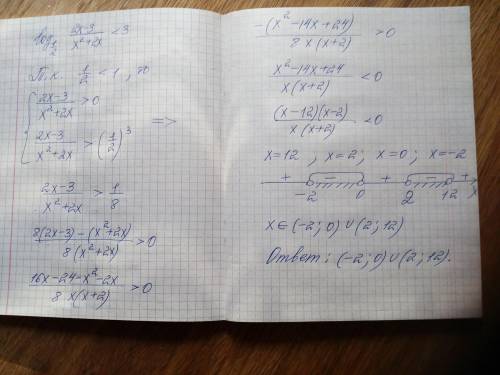 log_{1/2} (2x-3)/(x²+2x) < 3
Т.к. 1/2 < 1, то
{ (2x-3)/(x²+2x) > 0
{ (2x-3)/(x²+2x) > (1/2)³ =>
(2x-3)/(x²+2x) > 1/8
(8(2x-3)-(x²+2x))/(8(x²+2x)) > 0
(16x-24-x²-2x)/(8x(x+2)) > 0
-(x²-14x+24)/(8x(x+2)) > 0
(x²-14x+24)/(x(x+2)) < 0
((x-12)(x-2))/(x(x+2)) < 0
x=12, x=2; x=0; x=-2
+ - + - +
-2 0 2 12 x
x∈(-2;0)∪(2;12)
Ответ: (-2;0)∪(2;12).